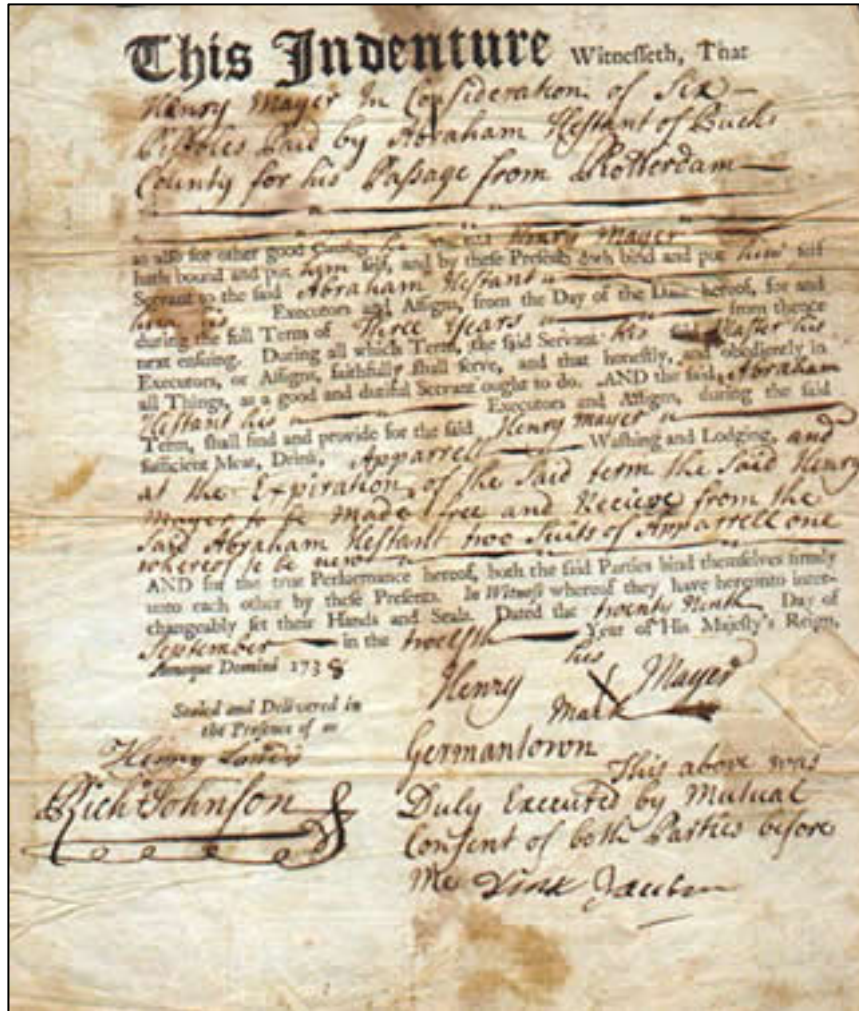 This Indenture Witnesseth, That
Henry Mayer In Consideration of Six
Pistoles Paid by Abraham Hestant of Bucks
County for his Passage from Rotterdam
as also for other good Causes, he the said Henry Mayer
hath bound and put him self, and by these Presents doth bind and put him self
Servant to the said Abraham Hestant
his Executors and Assigns, from the Day of the Date hereof, for and
during the full Term of Three Years from thence
next ensuing. During all which Term, the said Servant his said Master his
Executors, or Assigns, faithfully shall serve, and that honestly, and obediently in
all Things, as a good and dutiful Servant ought to do. AND the said, Abraham
Hestant his Executors and Assigns, during the said
Term, shall find and provide for the said Henry Mayer
sufficient Meat, Drink, Apparrell Washing and Lodging, and
at the Expiration of the Said term the Said Henry
Mayer to be Made free and Recieve from the
Said Abraham Hestant two Suits of Apparrell one
whereof to be new
AND for the true Performance hereof, both the said Parties bind themselves firmly
unto each other by these Presents. In Witness whereof they have hereunto inter-
changeably set their Hands and Seals. Dated the twenty Ninth Day of
September in the twelfth Year of His Majesty's Reign,
Annoque Domini 1738
his
Henry Mayer
Mark
Sealed and Delivered in
the Presence of us
Henry
Rich Johnson
Germantown
This above was
Duly Executed by Mutual
Consent of both Parties before
Me